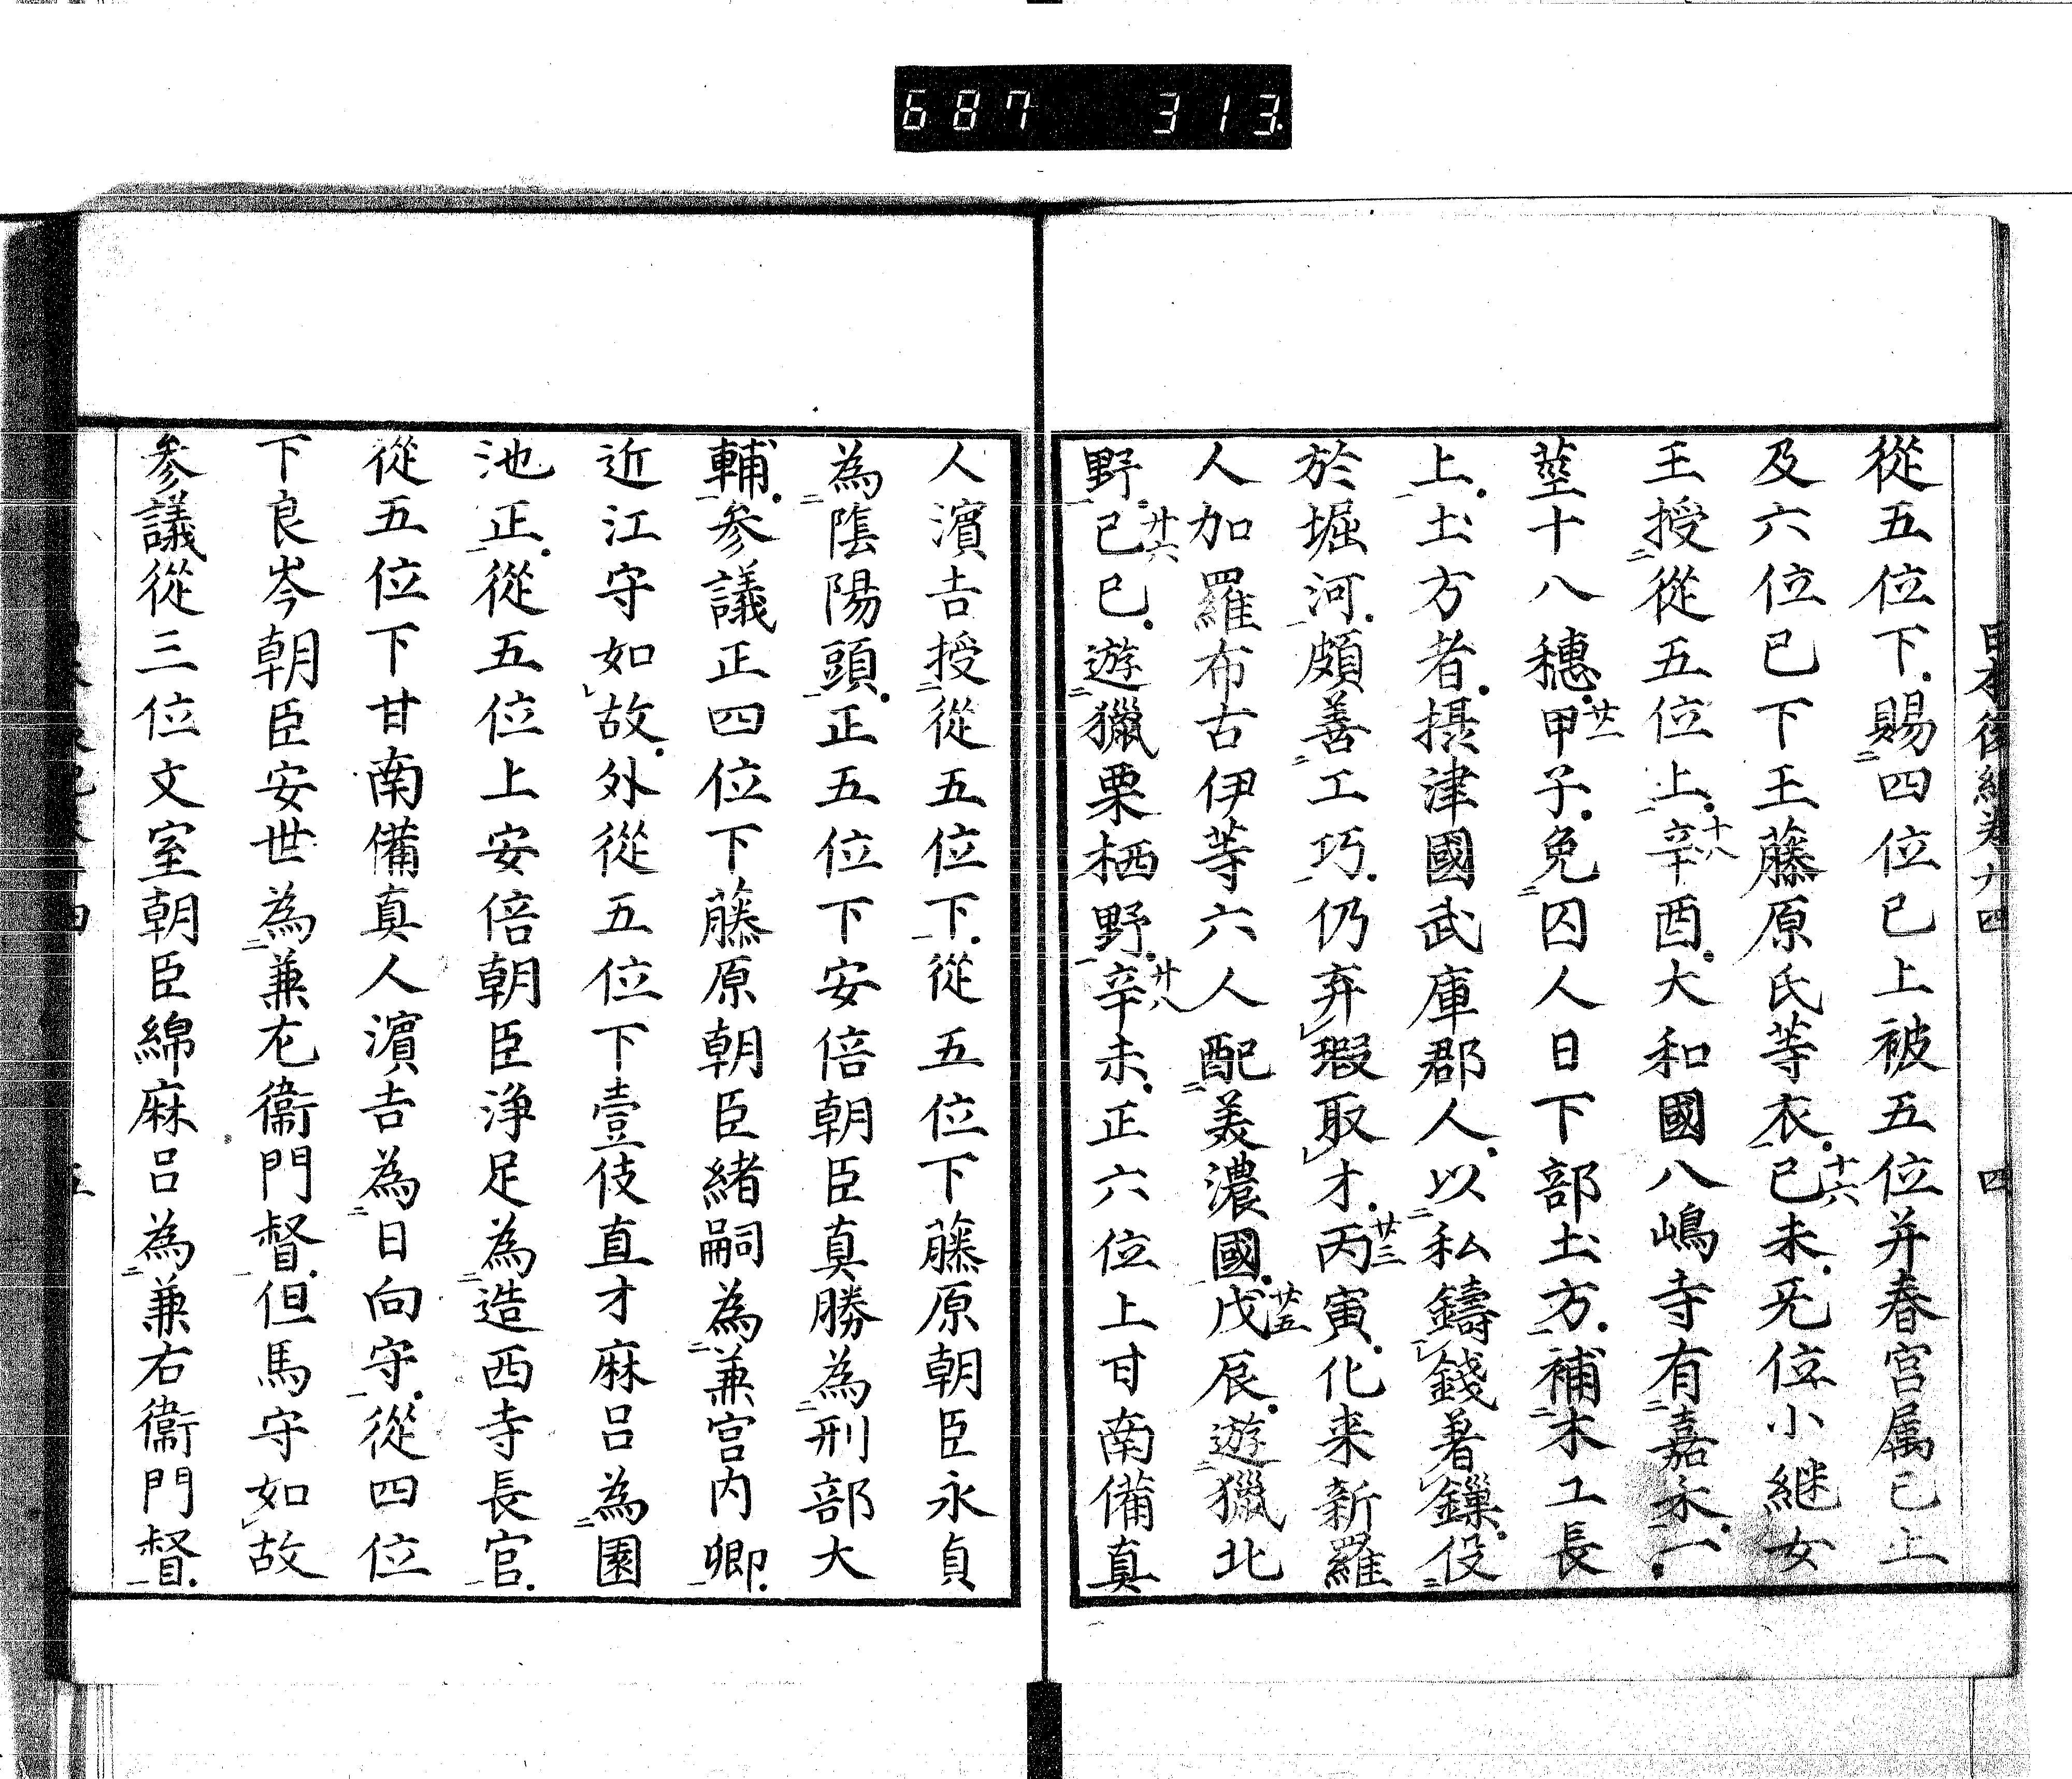 687 313.
日本後紀卷廿四 四
從五位下賜四位已上被五位并春宮属已上
及六位已下王藤原氏等衣十六己未无位小継女
王授從五位上十八辛酉大和國八嶋寺有嘉禾一
莖十八穗廿一甲子免囚人日下部土方補木工長
上土方者摂津國武庫郡人以私鑄錢著鏁役
於堀河頗善工巧仍弃瑕取才廿三丙寅化来新羅
人加羅布古伊等六人配美濃國廿五戊辰遊獵北
野廿六己巳遊獵栗栖野廿八辛未正六位上甘南備真
人濵吉授從五位下從五位下藤原朝臣永貞
為陰陽頭正五位下安倍朝臣真勝為刑部大
輔参議正四位下藤原朝臣緒嗣為兼宮内卿
近江守如故外從五位下壹伎直才麻呂為園
池正從五位上安倍朝臣浄足為造西寺長官
從五位下甘南備真人濵吉為日向守從四位
下良岑朝臣安世為兼尢衛門督但馬守如故
参議從三位文室朝臣綿麻呂為兼右衛門督